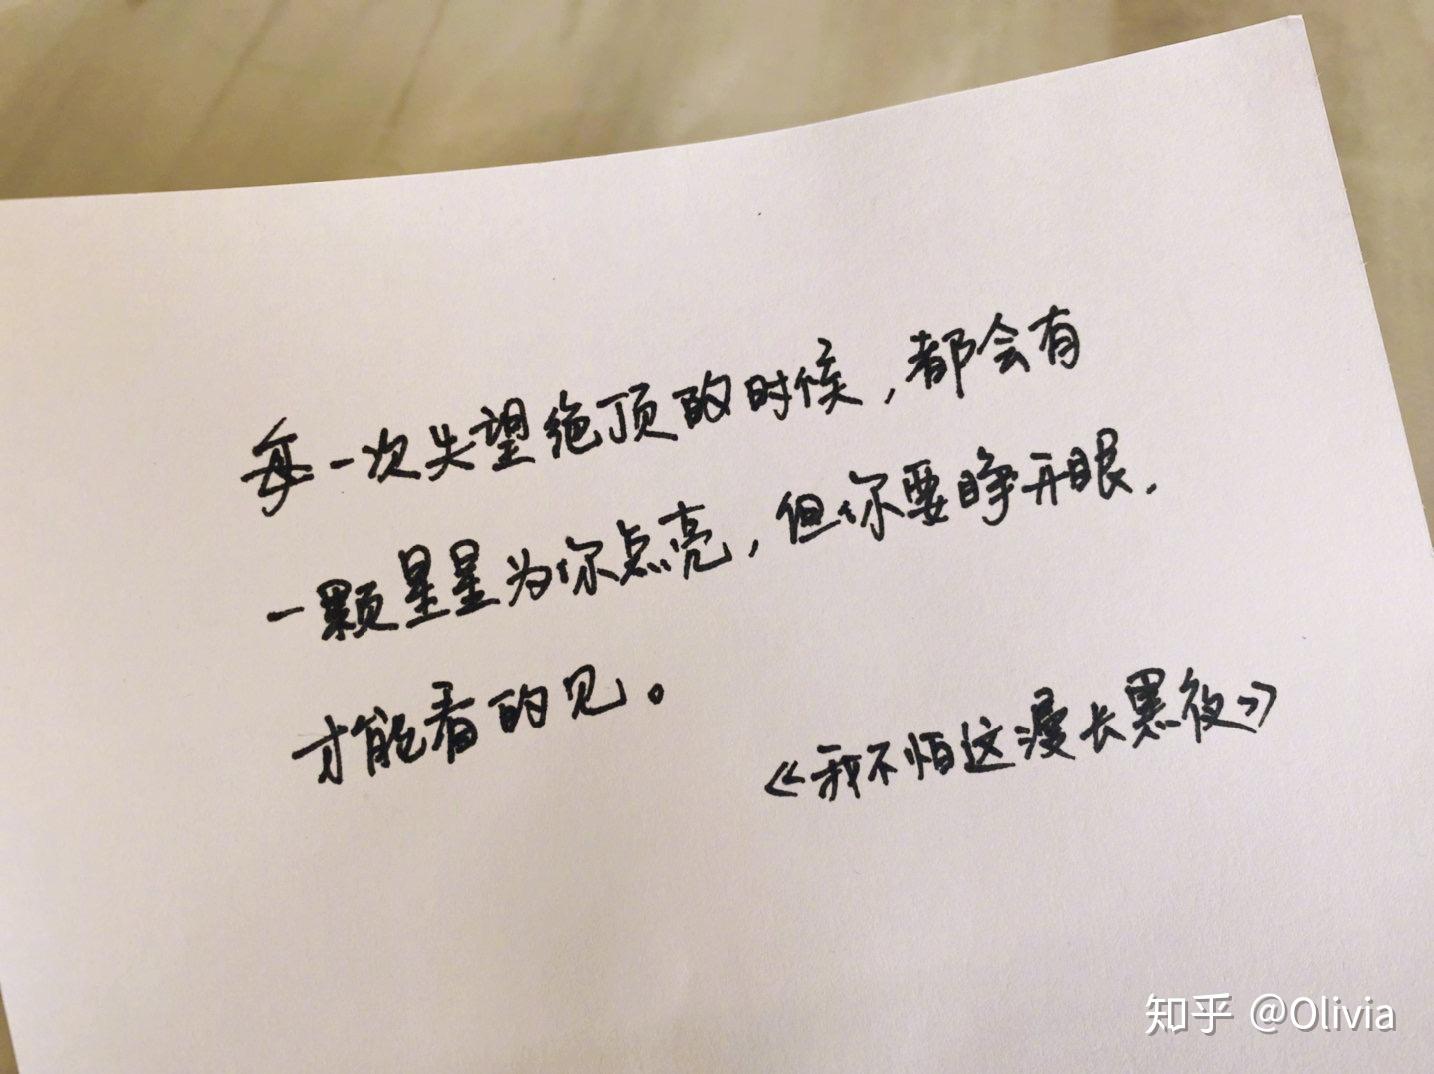 每一次失望绝顶的时候，都会有
一颗星星为你点亮，但你要睁开眼．
才能看的见。
《我不怕这漫长黑夜》
知乎 @Olivia